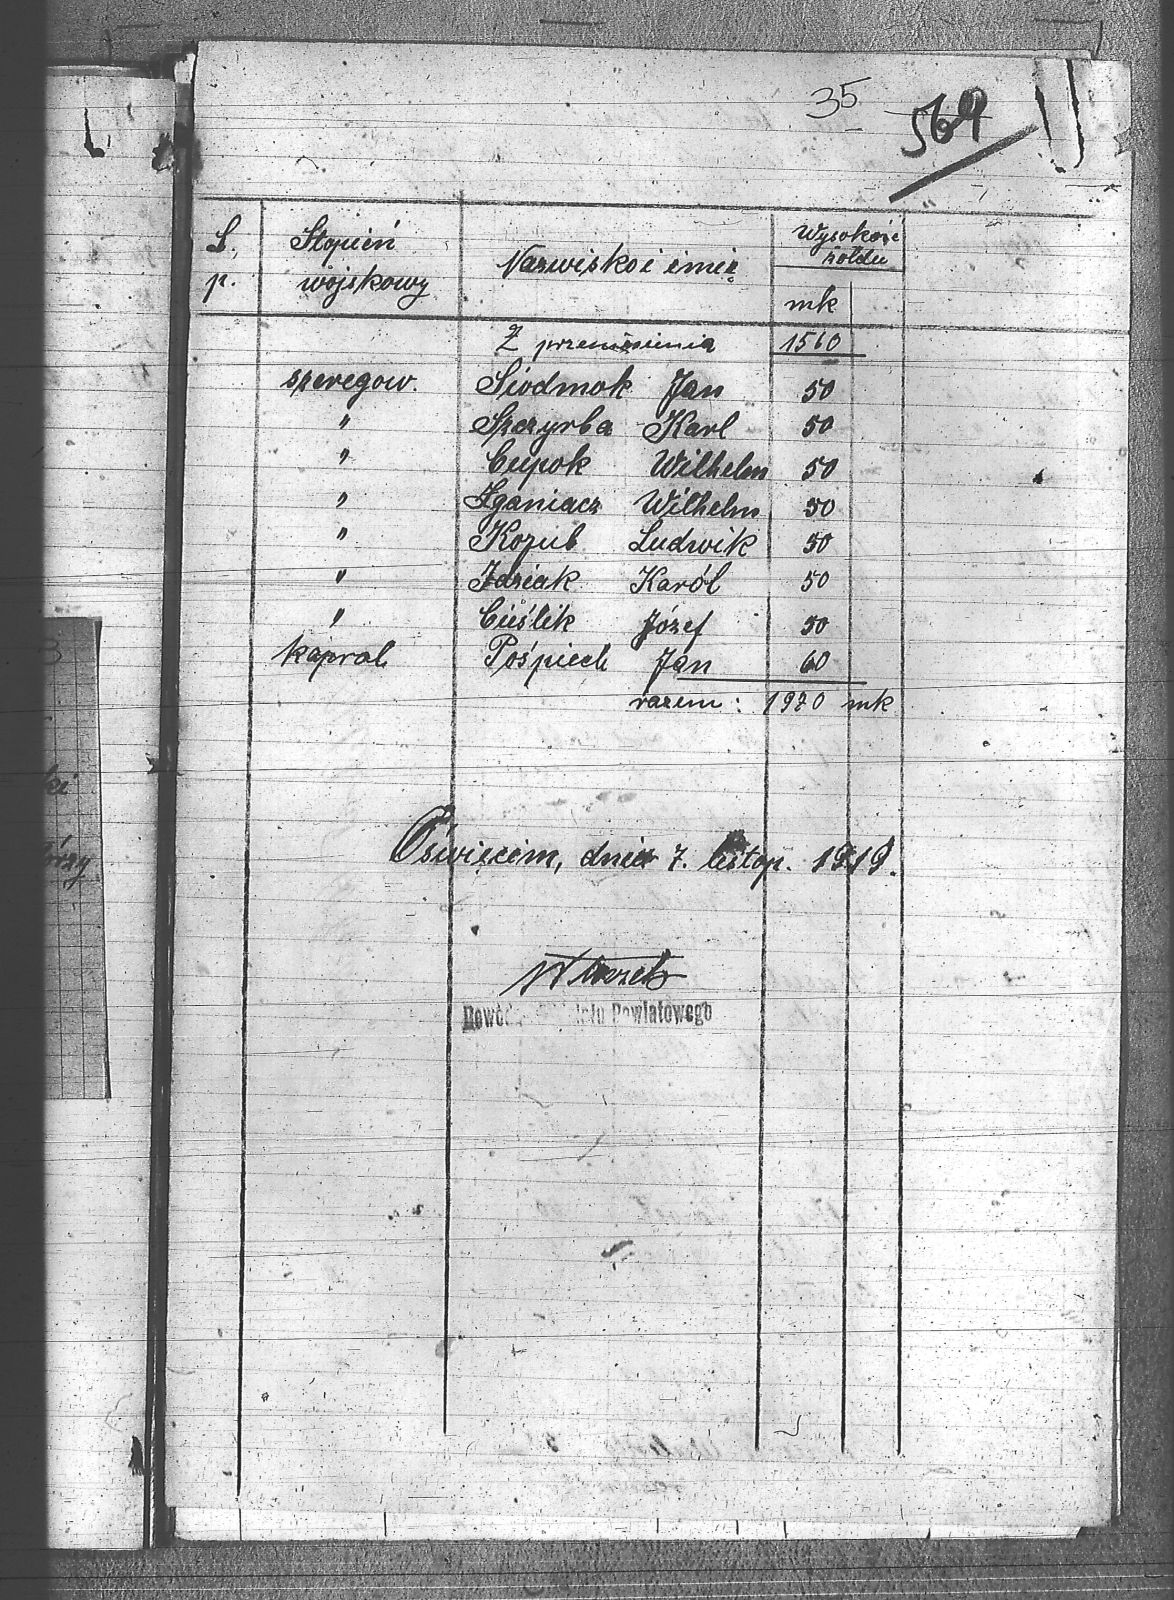 35
564
L. p. Stopień wojskowy Nazwisko i imię Wysokość żołdu mk
Z przeniesienia 1560
szeregow. Siodmok Jan 50
" Szczyrba Karl 50
" Cupok Wilhelm 50
" Iganiacz Wilhelm 50
" Kozub Ludwik 50
" Idziak Karól 50
" Cuślik Józef 50
kapral Pośpiech Jan 60
razem: 1970 mk
Oświęcim, dnia 7. listop. 1919.
Powiatowego